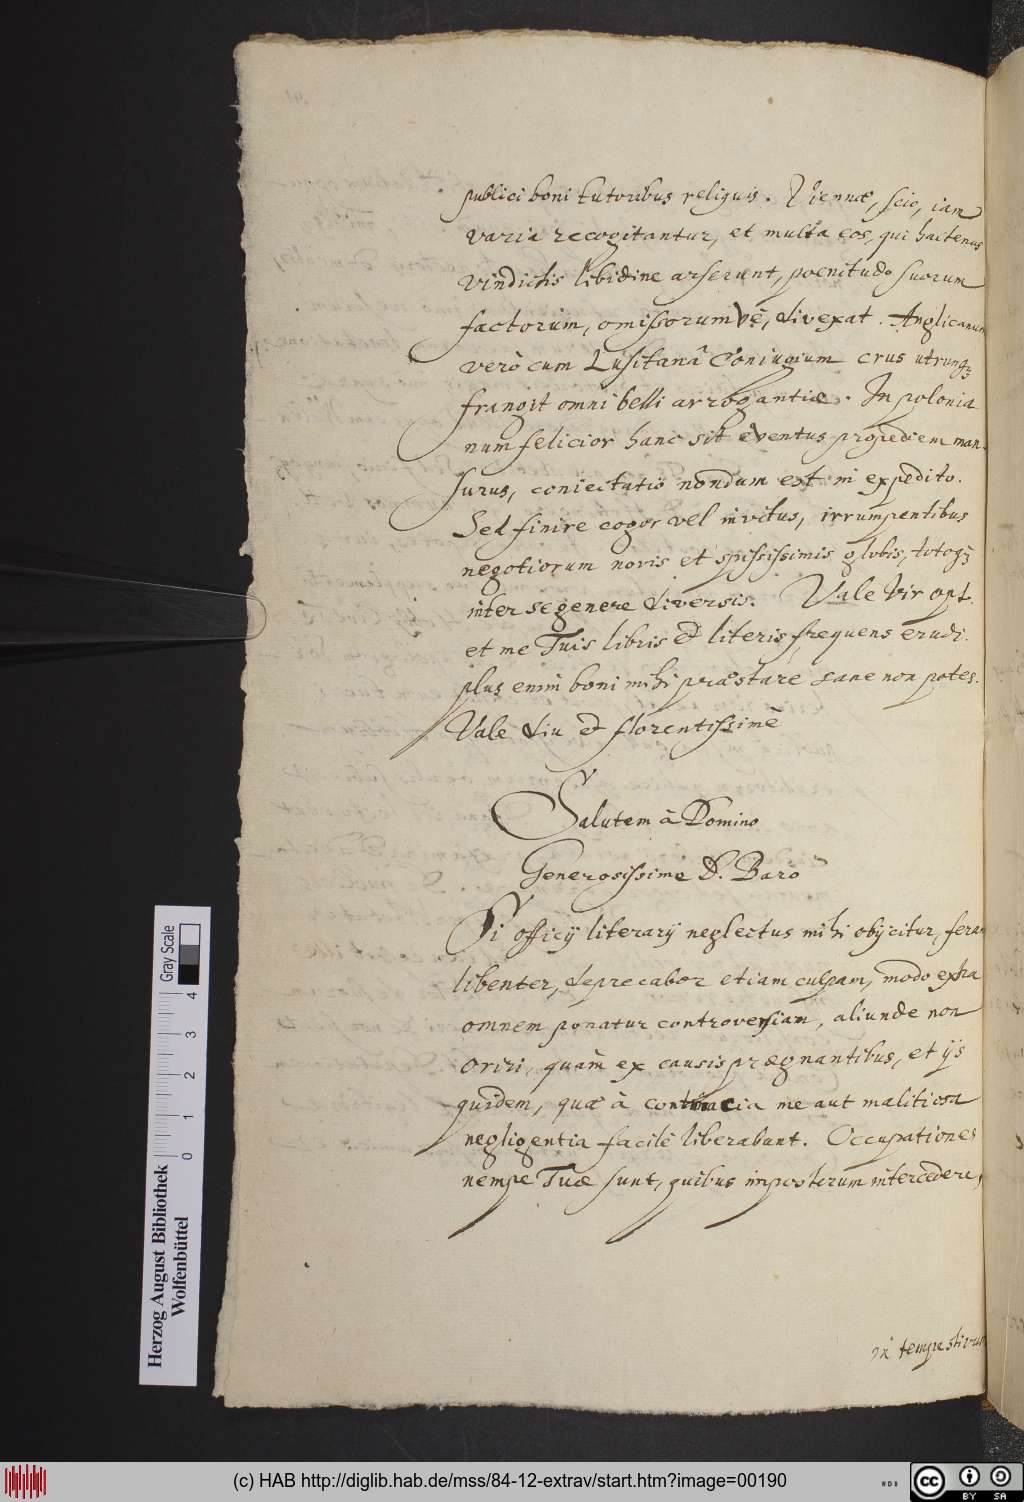 publici boni tutoribus reliquis. Viennæ, scio, iam
varia recogitantur, et multa eos, qui hactenus
vindictis libidine arserunt, poenitudo suorum
factorum, omissorumvè, divexat. Anglicanum
verò cum Lusitanâ Coniugium crus utrunq₃
frangit omni belli arrogantiæ. In polonia
num felicior hanc sit eventus propediem man-
surus, coniectatio nondum est in expedito.
Sed finire cogor vel invitus, irrumpentibus
negotiorum novis et spississimis globis, totoq₃
inter se genere diversis. Vale Vir opt.
et me Tuis libris et literis frequens erudi.
plus enim boni mihi præstare sane non potes.
Vale diu et florentissimè
Salutem à Domino
Generosissime D. Baro
Si officij literarij neglectus mihi obijcitur, feram
libenter, deprecabor etiam culpam, modo extra
omnem ponatur controversiam, aliunde non
oriri, quàm ex causis prægnantibus, et ijs
quidem, quæ à me aut malitiosa
negligentia facilè liberabunt. Occupationes
nempe Tuæ sunt, quibus importunum intercedere,
intempestivum
Gray Scale
0 1 2 3 4
Herzog August Bibliothek
Wolfenbüttel
(c) HAB http://diglib.hab.de/mss/84-12-extrav/start.htm?image=00190
WDB
cc BY SA